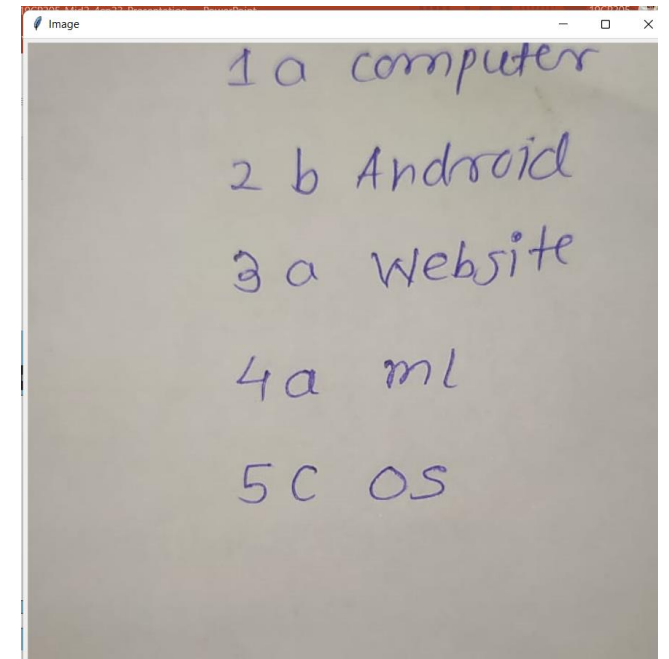 Image
1 a computer
2 b Android
3 a Website
4 a ml
5 C OS